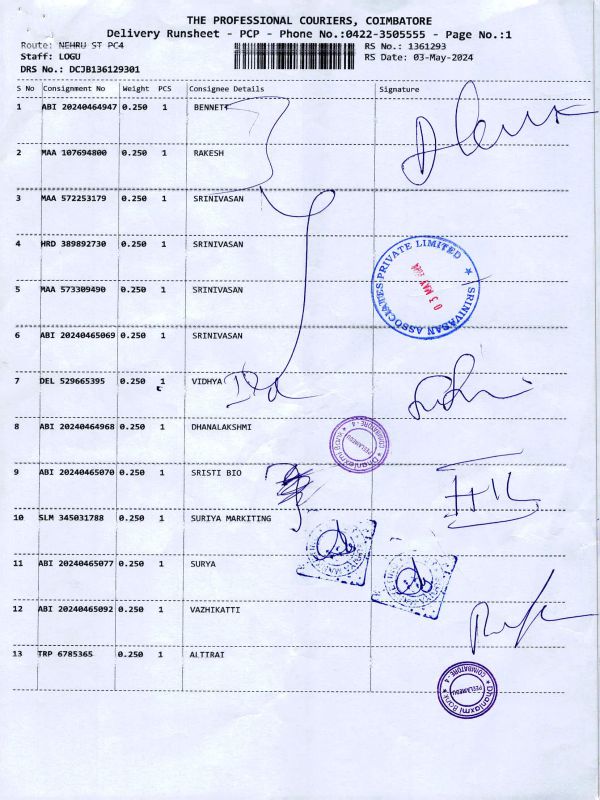 THE PROFESSIONAL COURIERS, COIMBATORE
Delivery Runsheet - PCP - Phone No.:0422-3505555 - Page No.:1
Route: NEHRU ST PC4 RS No.: 1361293
Staff: LOGU RS Date: 03-May-2024
DRS No.: DCJB136129301
S No Consignment No Weight PCS Consignee Details Signature
1 ABI 20240464947 0.250 1 BENNETT
2 MAA 107694800 0.250 1 RAKESH
3 MAA 572253179 0.250 1 SRINIVASAN
4 HRD 389892730 0.250 1 SRINIVASAN
SRINIVASAN ASSOCIATES PRIVATE LIMITED ★
03 MAY 2024
5 MAA 573309490 0.250 1 SRINIVASAN
6 ABI 20240465069 0.250 1 SRINIVASAN
7 DEL 529665395 0.250 1 VIDHYA
8 ABI 20240464968 0.250 1 DHANALAKSHMI
Dhanlaxmi Bank
PEELAMEDU
COIMBATORE - 4
9 ABI 20240465070 0.250 1 SRISTI BIO
10 SLM 345031788 0.250 1 SURIYA MARKITING
11 ABI 20240465077 0.250 1 SURYA
12 ABI 20240465092 0.250 1 VAZHIKATTI
13 TRP 6785365 0.250 1 ALTIRAI
Dhanlaxmi Bank
PEELAMEDU
COIMBATORE - 4